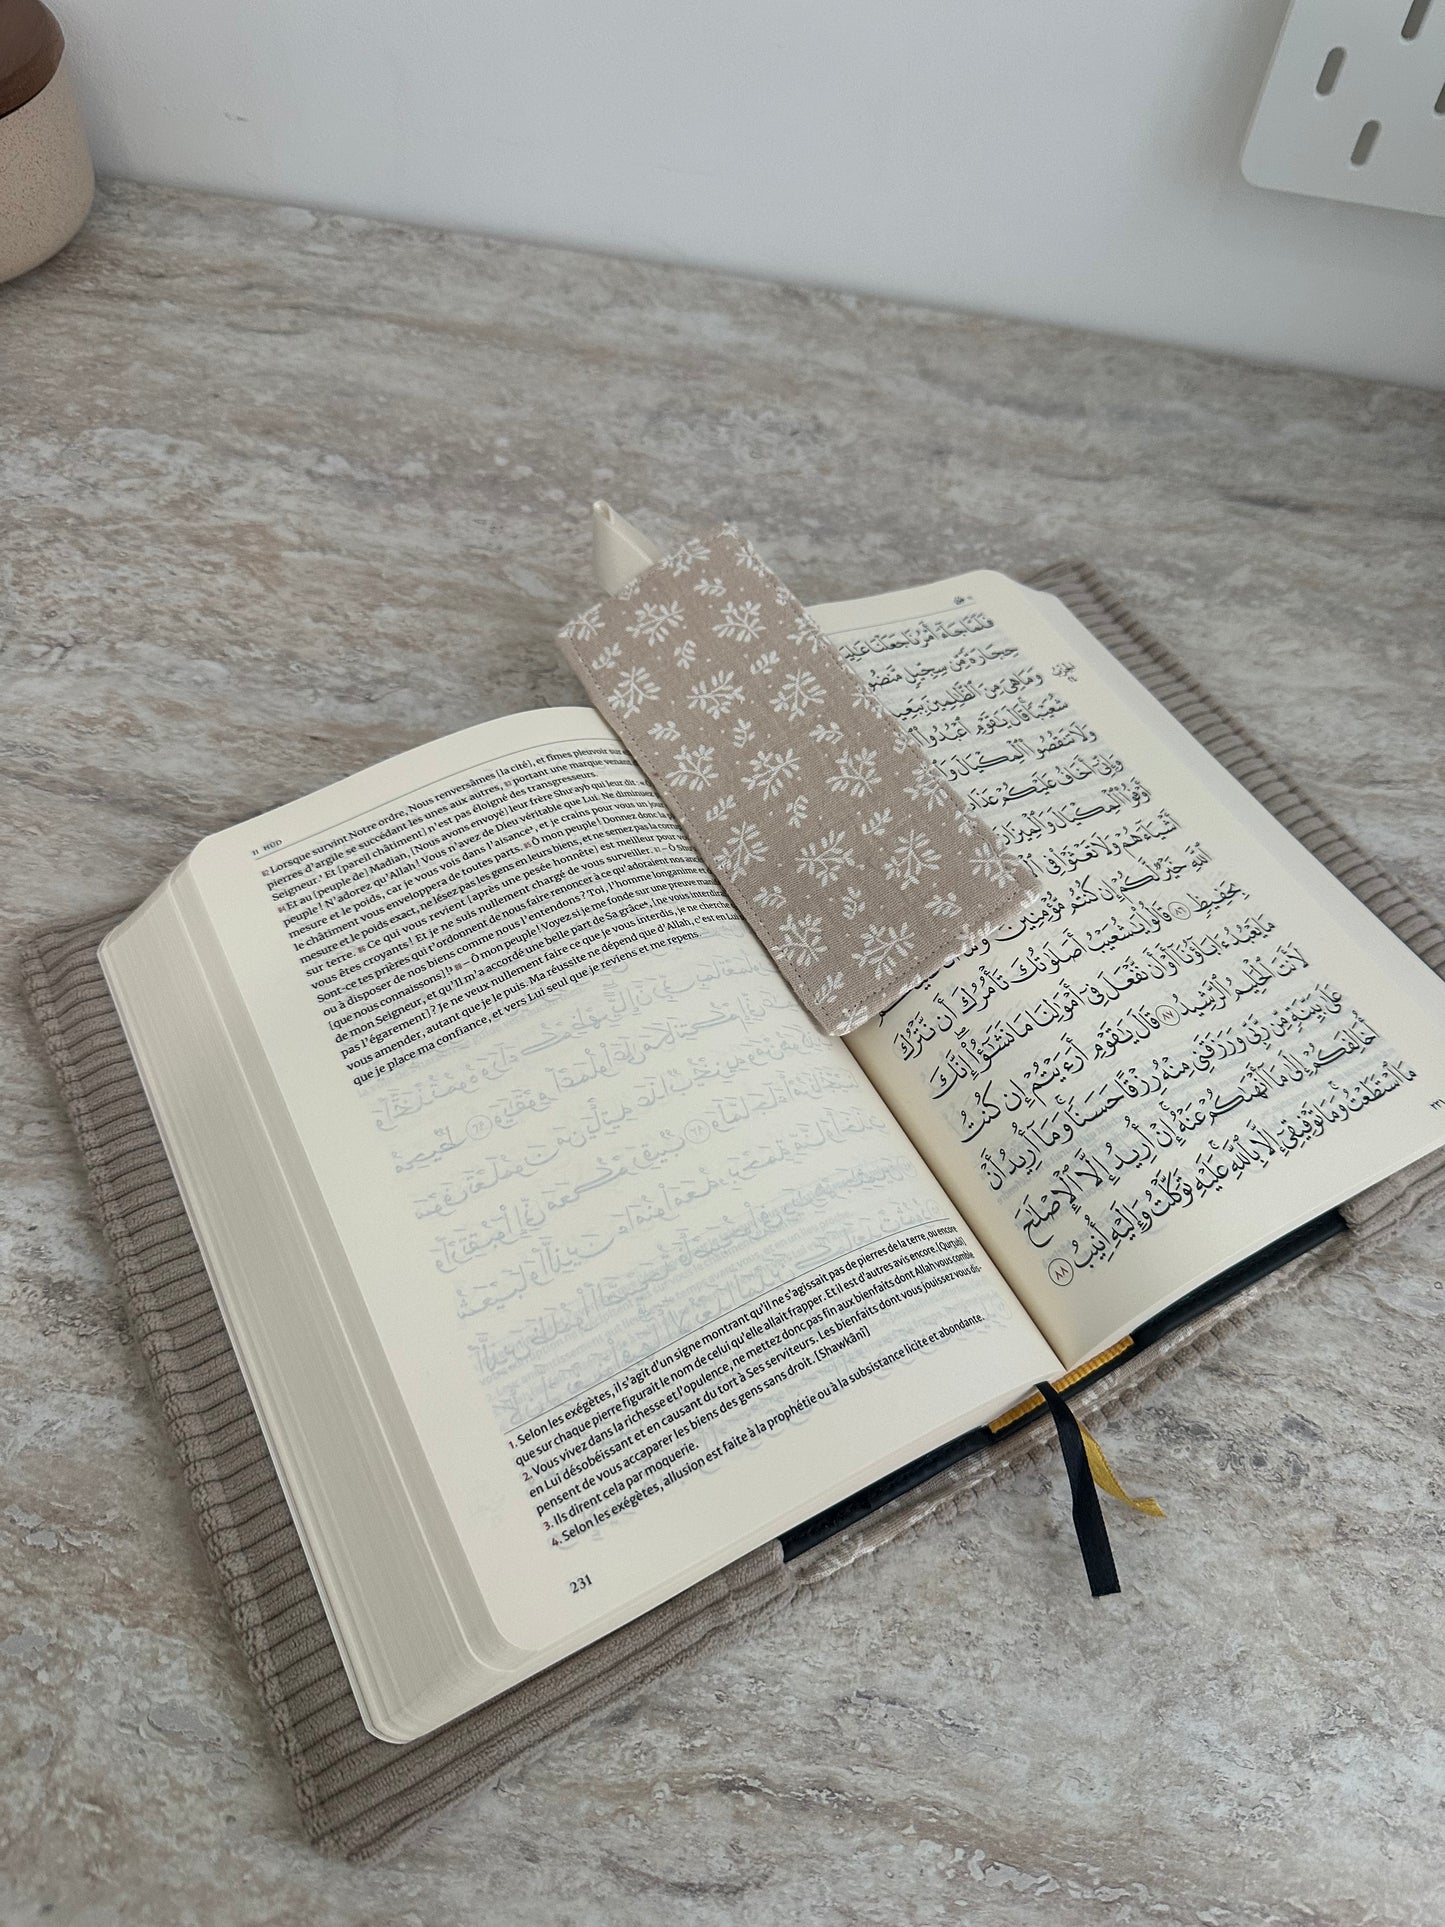 11 HÛD
82 Lorsque survint Notre ordre, Nous renversâmes [la cité], et fîmes pleuvoir sur
pierres d'argile se succédant les unes aux autres, 83 portant une marque venant
Seigneur.¹ Et [pareil châtiment] n'est pas éloigné des transgresseurs.
84 Et au [peuple de] Madian, [Nous avons envoyé] leur frère Shu'ayb qui leur dit
peuple ! N'adorez qu'Allah ! Vous n'avez de Dieu véritable que Lui. Ne diminuez
mesure et le poids, car je vous vois dans l'aisance², et je crains pour vous un jour
le châtiment vous enveloppera de toutes parts. 85 Ô mon peuple ! Donnez donc la
mesure et le poids exact, ne lésez pas les gens en leurs biens, et ne semez pas la
sur terre. 86 Ce qui vous revient [après une pesée honnête] est meilleur pour
vous êtes croyants ! Et je ne suis nullement chargé de vous surveiller. 87 – Ô
Sont-ce tes prières qui t'ordonnent de nous faire renoncer à ce qu'adoraient nos
ou à disposer de nos biens comme nous l'entendons ? Toi, l'homme longanime
[que nous connaissons] !³ 88 – Ô mon peuple ! Voyez si je me fonde sur une preuve
de mon Seigneur, et qu'Il m'a accordé une belle part de Sa grâce⁴, [ne vous interdirai-
pas l'égarement] ? Je ne veux nullement faire ce que je vous interdis, je ne cherche
vous amender, autant que je le puis. Ma réussite ne dépend que d'Allah, c'est en Lui
que je place ma confiance, et vers Lui seul que je reviens et me repens.
1. Selon les exégètes, il s'agit d'un signe montrant qu'il ne s'agissait pas de pierres de la terre, ou encore
que sur chaque pierre figurait le nom de celui qu'elle allait frapper. Et il est d'autres avis encore. [Qurtubî]
2. Vous vivez dans la richesse et l'opulence, ne mettez donc pas fin aux bienfaits dont Allah vous comble
en Lui désobéissant et en causant du tort à Ses serviteurs. Les bienfaits dont vous jouissez vous dis-
pensent de vous accaparer les biens des gens sans droit. [Shawkânî]
3. Ils dirent cela par moquerie.
4. Selon les exégètes, allusion est faite à la prophétie ou à la subsistance licite et abondante.
231
فَلَمَّا جَآءَ أَمْرُنَا جَعَلْنَا
حِجَارَةً مِّن سِجِّيلٍ
وَمَا هِىَ مِنَ ٱلظَّٰلِمِينَ
شُعَيْبًا قَالَ يَٰقَوْمِ ٱعْبُدُوا۟
وَلَا تَنقُصُوا۟ ٱلْمِكْيَالَ
وَإِنِّىٓ أَخَافُ عَلَيْكُمْ
أَوْفُوا۟ ٱلْمِكْيَالَ وَٱلْمِيزَانَ
أَشْيَآءَهُمْ وَلَا تَعْثَوْا۟ فِى
ٱللَّهِ خَيْرٌ لَّكُمْ إِن كُنتُم مُّؤْمِنِينَ
بِحَفِيظٍ ٨٦ قَالُوا۟ يَٰشُعَيْبُ أَصَلَوٰتُكَ تَأْمُرُكَ أَن نَّتْرُكَ
مَا يَعْبُدُ ءَابَآؤُنَآ أَوْ أَن نَّفْعَلَ فِىٓ أَمْوَٰلِنَا مَا نَشَٰٓؤُا۟ إِنَّكَ
لَأَنتَ ٱلْحَلِيمُ ٱلرَّشِيدُ ٨٧ قَالَ يَٰقَوْمِ أَرَءَيْتُمْ إِن كُنتُ
عَلَىٰ بَيِّنَةٍ مِّن رَّبِّى وَرَزَقَنِى مِنْهُ رِزْقًا حَسَنًا وَمَآ أُرِيدُ أَنْ
أُخَالِفَكُمْ إِلَىٰ مَآ أَنْهَىٰكُمْ عَنْهُ إِنْ أُرِيدُ إِلَّا ٱلْإِصْلَٰحَ
مَا ٱسْتَطَعْتُ وَمَا تَوْفِيقِىٓ إِلَّا بِٱللَّهِ عَلَيْهِ تَوَكَّلْتُ وَإِلَيْهِ أُنِيبُ ٨٨